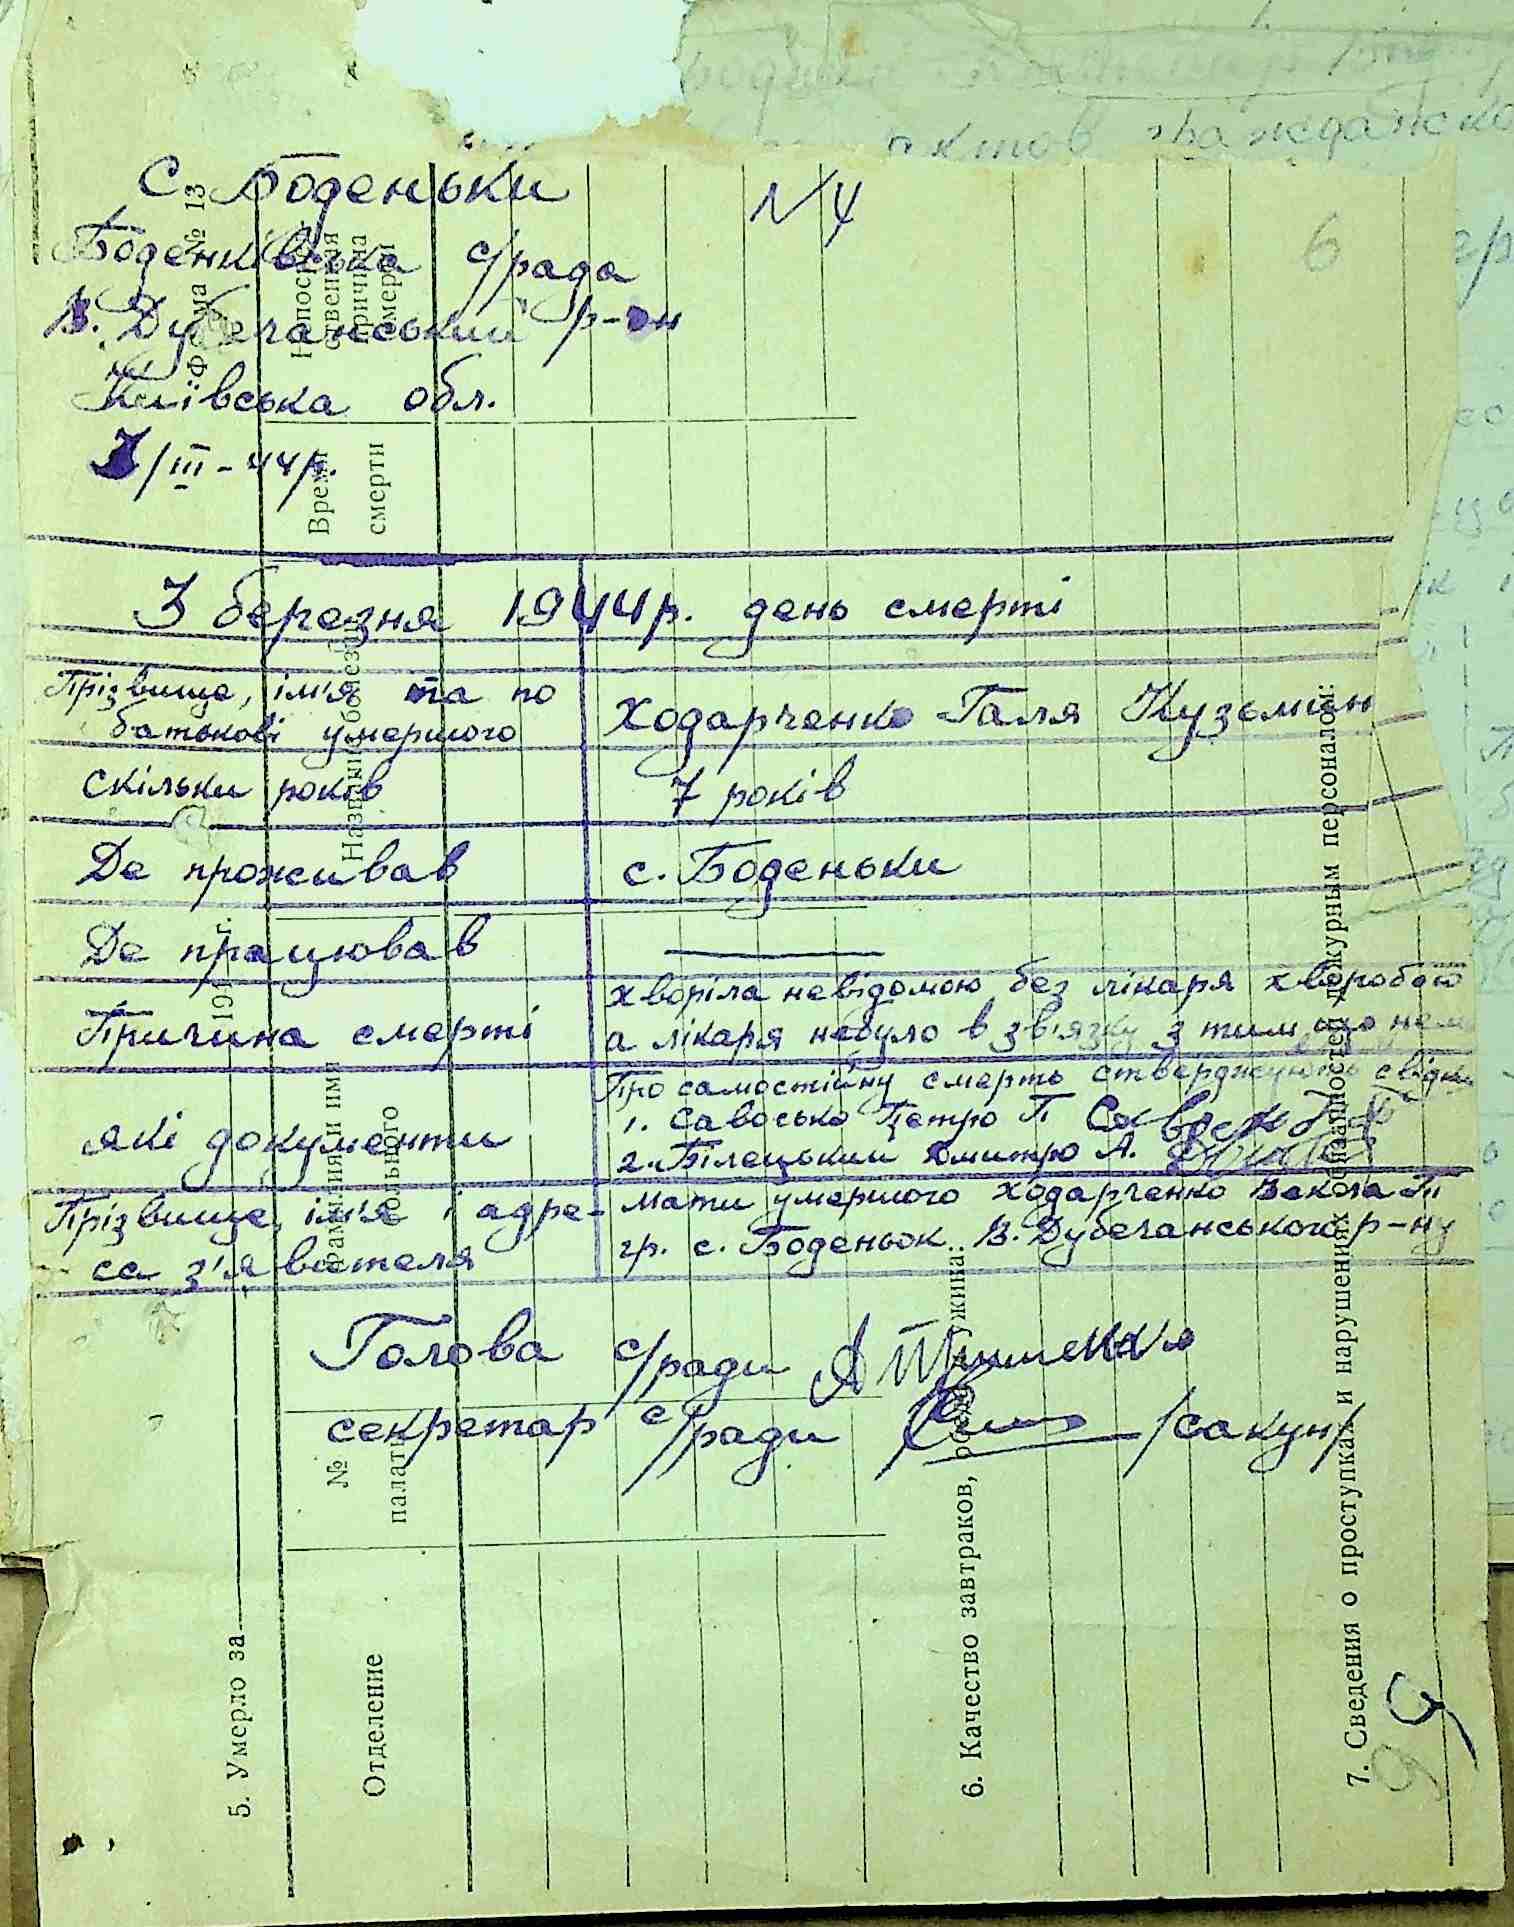 с. Боденьки
N 4
6
Боденківська с/рада
В. Дубечанський р-он
Київська обл.
3/III-44р.
3 березня 1944р. день смерті
Прізвище, ім'я та по
батькові умершого
Ходарченко Галя Кузьмин
скільки років
7 років
Де проживав
с. Боденьки
Де працював
Причина смерті
хворіла невідомою без лікаря хворобою
а лікаря небуло в зв'язку з тим, що нем
які документи
Про самостійну смерть стверджують свідки
1. Савосько Петро П
2. Білецький Дмитро А.
Прізвище, ім'я і адре-
са з'явителя
мати умершого Ходарченко П
гр. с. Боденьок В. Дубечанського р-ну
Голова с/ради А
секретар с/ради /сакун/
Форма № 13
Непосред-
ственная
причина
смерти
Время
смерти
Название болезни
Фамилия и имя
больного
№
палаты
Отделение
5. Умерло за 194 г.
6. Качество завтраков, ужина:
7. Сведения о проступках и нарушениях обязанностей дежурным персоналом:
актов гражданско